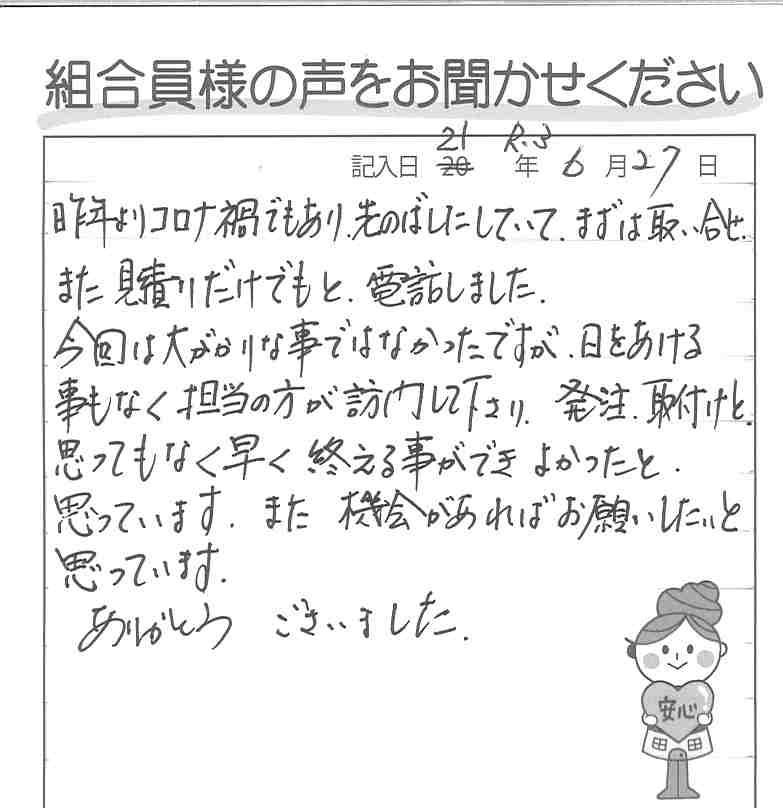 組合員様の声をお聞かせください
21 R.3
記入日 20 年 6 月 27 日
昨年よりコロナ禍でもあり、先のばしにしていて、まずは取い合せ、
また見積りだけでもと、電話しました。
今回は大がかりな事ではなかったですが、日をあける
事もなく担当の方が訪問して下さり、発注、取付けと、
思ってもなく早く終える事ができよかったと、
思っています。また機会があればお願いしたいと
思っています。
ありがとう ございました。
安心